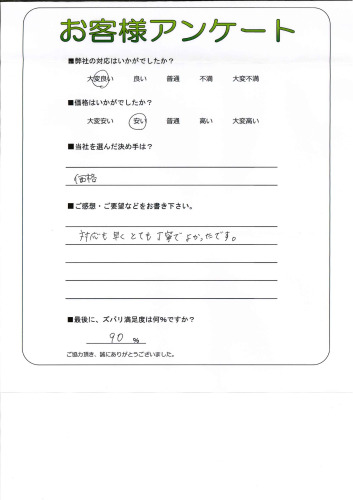 お客様アンケート
■弊社の対応はいかがでしたか？
大変良い 良い 普通 不満 大変不満
■価格はいかがでしたか？
大変安い 安い 普通 高い 大変高い
■当社を選んだ決め手は？
価格
■ご感想・ご要望などをお書き下さい。
対応も早くとても丁寧でよかったです。
■最後に、ズバリ満足度は何%ですか？
90 %
ご協力頂き、誠にありがとうございました。